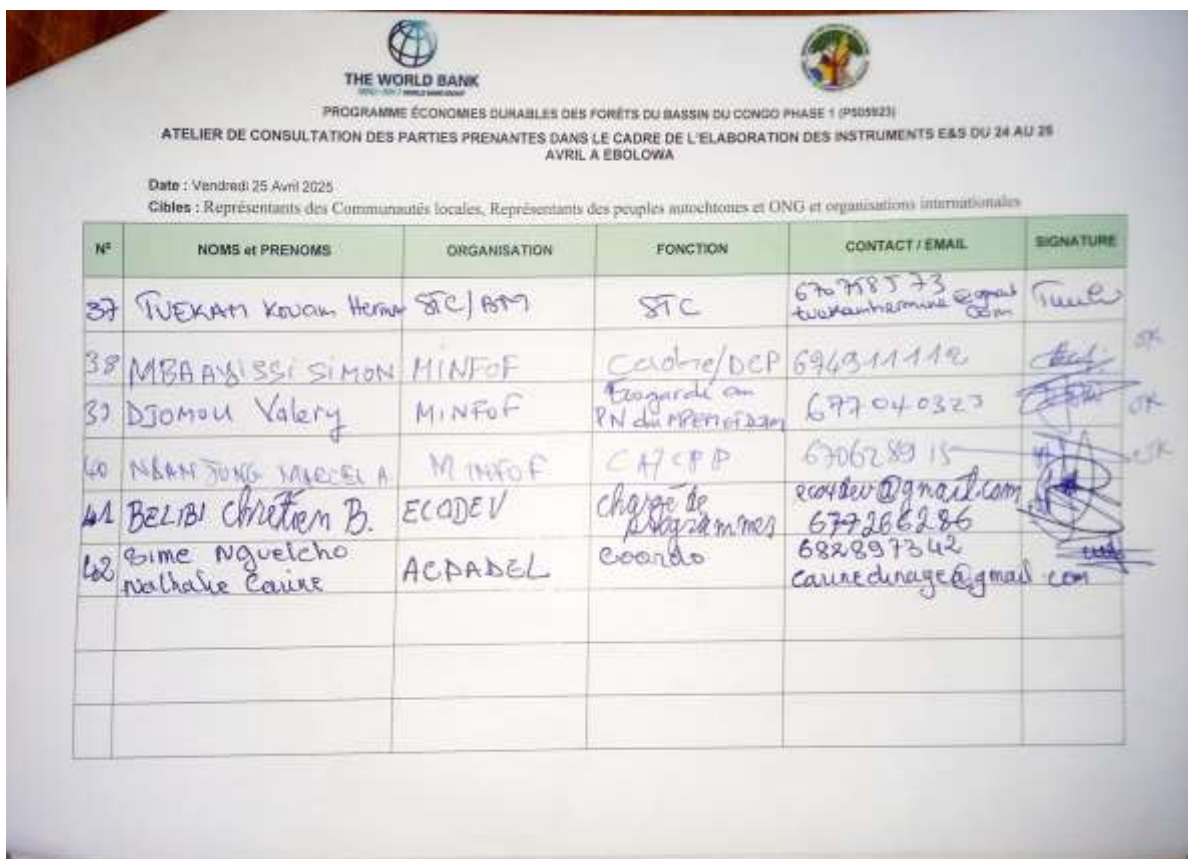 THE WORLD BANK
PROGRAMME ÉCONOMIES DURABLES DES FORÊTS DU BASSIN DU CONGO PHASE 1 (P505923)
ATELIER DE CONSULTATION DES PARTIES PRENANTES DANS LE CADRE DE L'ELABORATION DES INSTRUMENTS E&S DU 24 AU 26
AVRIL A EBOLOWA
Date : Vendredi 25 Avril 2025
Cibles : Représentants des Communautés locales, Représentants des peuples autochtones et ONG et organisations internationales
N° NOMS et PRENOMS ORGANISATION FONCTION CONTACT / EMAIL SIGNATURE
37 TUEKAM Kouam STC STC
38 MBA AYISSI SIMON MINFOF Cadre/DCP 694911112
39 DJOMOU Valery MINFOF PN du 677040323
40 MINFOF 670628915
41 BELIBI Chrétien B. ECODEV chargé de programmes @gmail.com 677266286
42 Sime Nguelcho Nathalie Carine ACPADEL coordo 682897342 carinedenage@gmail com